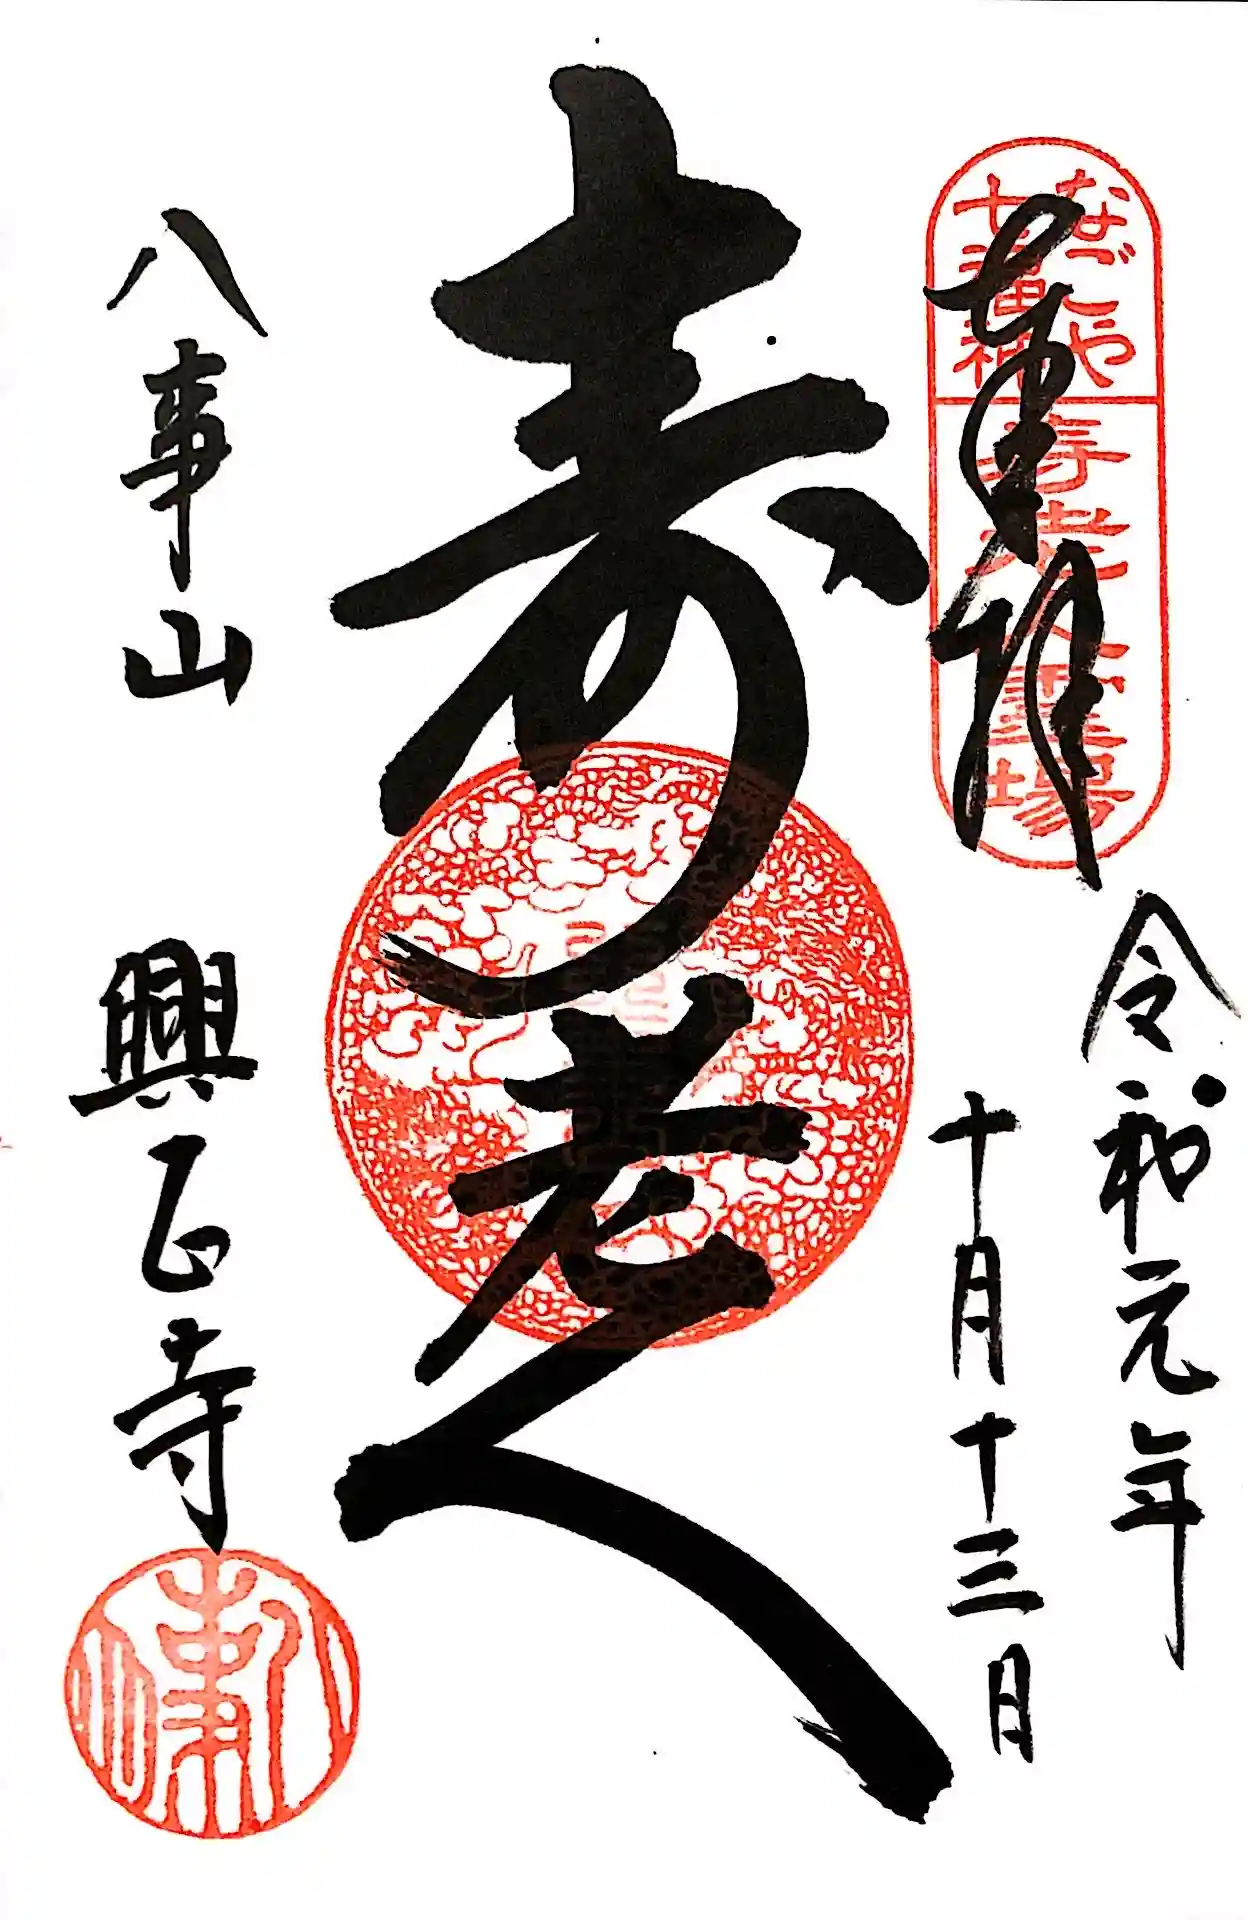 なごや
七福神
寿老人霊場
奉拝
令和元年
十月十三日
寿老人
八事山 興正寺
八事山